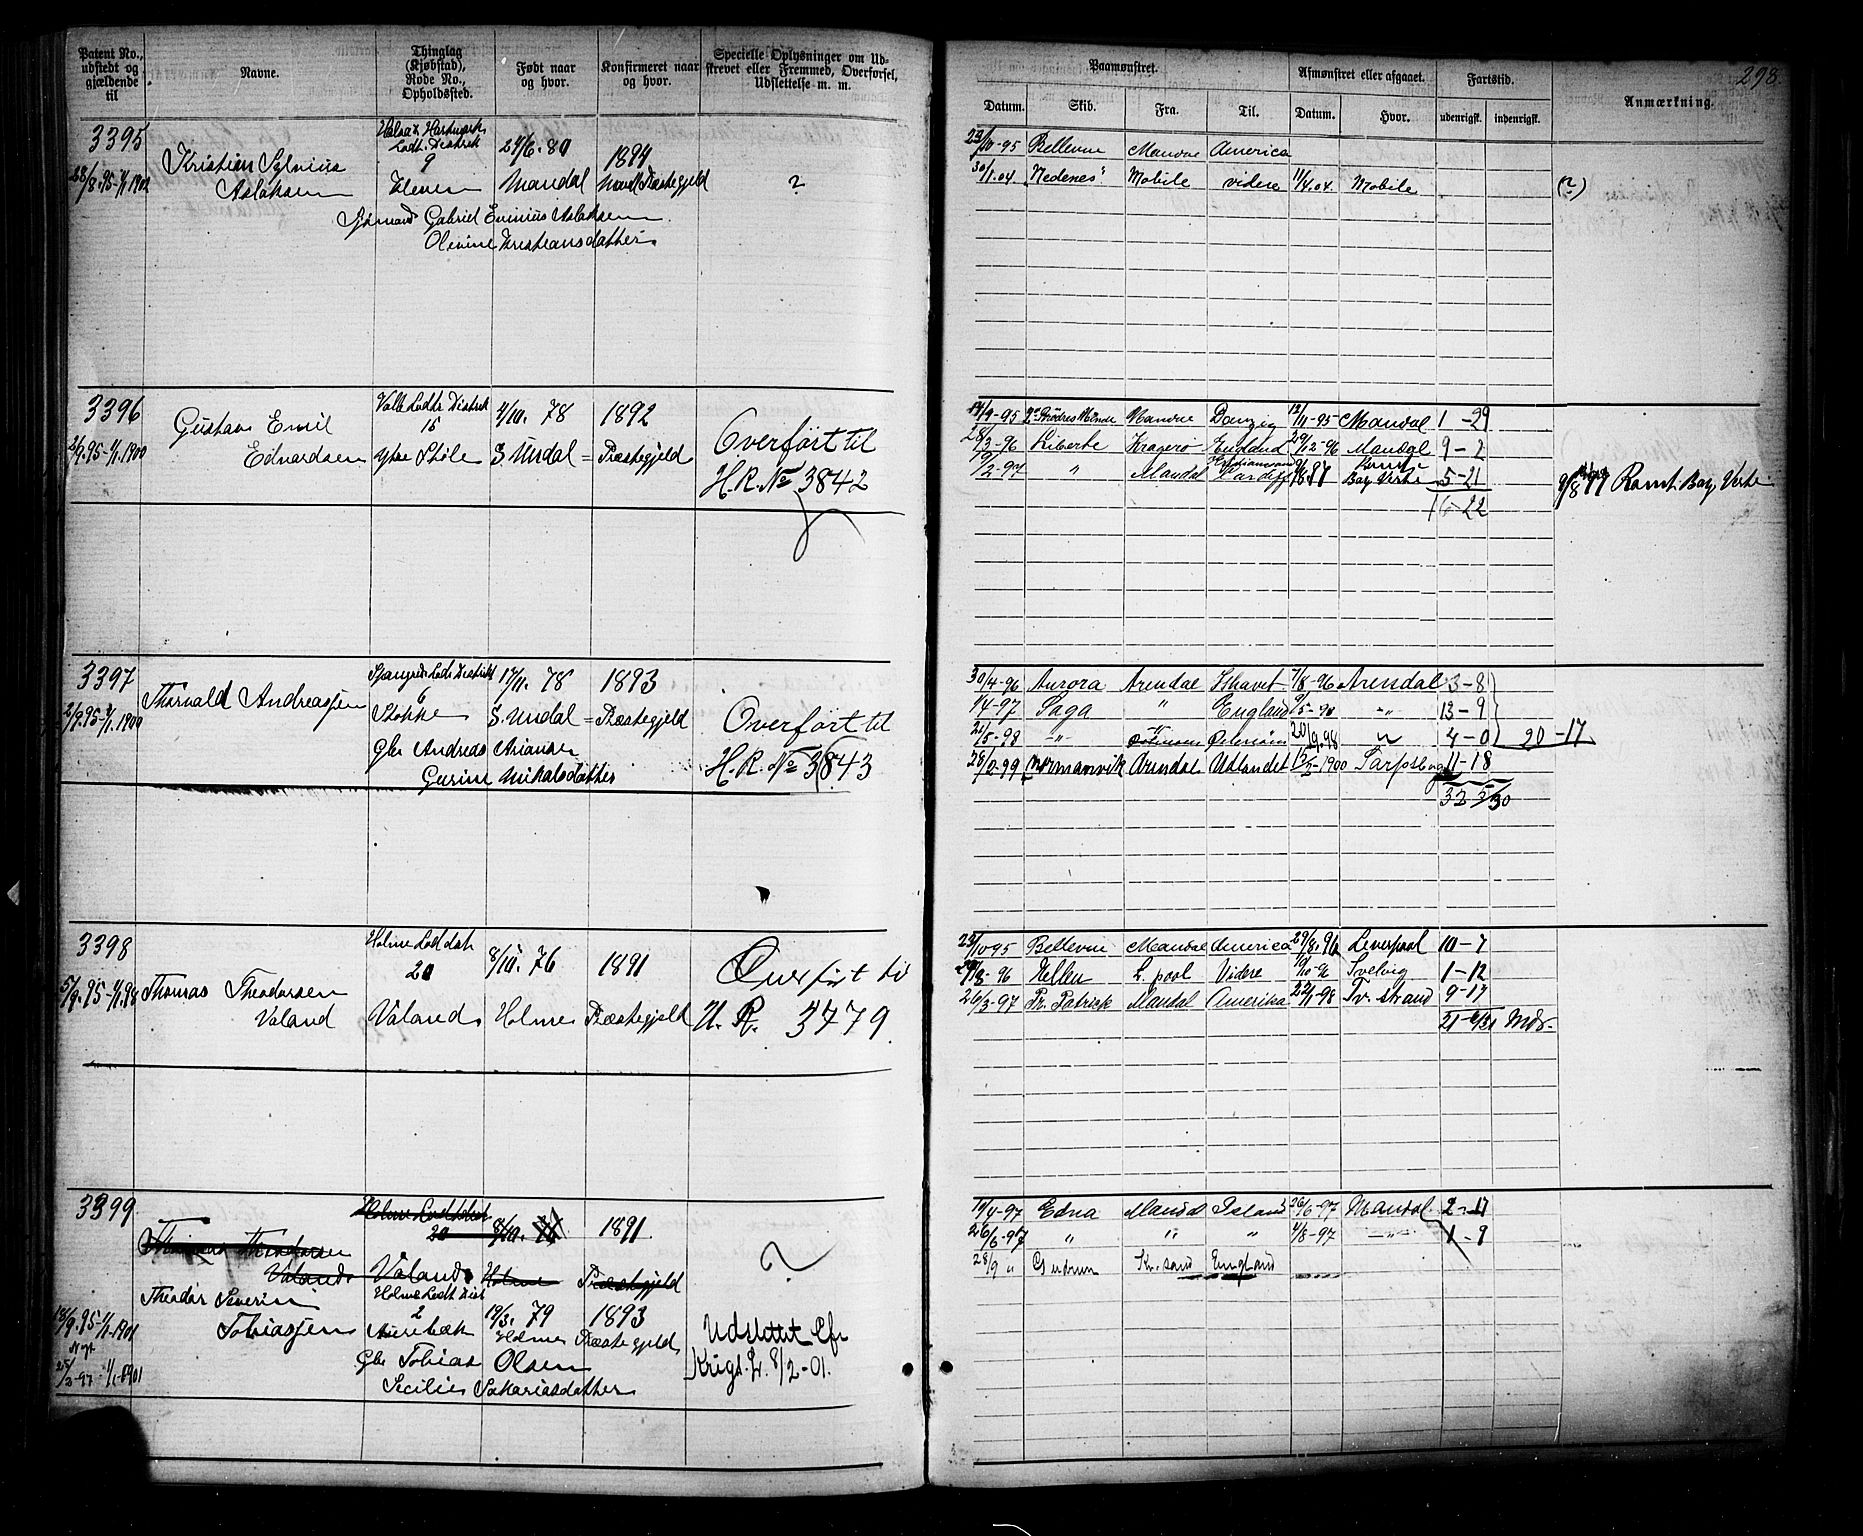 Patent No., udstedt og gjældende til
Navne.
Thinglag (Kjøbstad), Rode No., Opholdssted.
Født naar og hvor.
Konfirmeret naar og hvor.
Specielle Oplysninger om Udskrevet eller Fremmed, Overførsel, Udslettelse m. m.
Paamønstret.
Datum.
Skib.
Fra.
Til.
Afmønstret eller afgaaet.
Datum.
Hvor.
Fartstid.
udenrigsk.
indenrigsk.
Anmærkning.
298
3395
28/8.95-1/1 1902
Kristian Sylvius
Aslaksen
Halsaa & Hartmark
Lodt. Distrik
9
24/6. 80
Mandal
1894
Præstegjeld
?
Sjømand Gabriel Aslaksen
Olevine Kristiansdatter
23/10-95 Bellevue Mandal America
30/1.04 "Nedenes" Mobile videre 11/4.04 Mobile
(?)
3396
2/9.95-1/1.1900
Gustav Emil
Edvardsen
Valle Lodts Distrik
15
Ytre Støle
4/10. 78
S. Undal =
1892
Præstegjeld
Overført til
H. R. No 3842
14/9-95 Mandal Danzig 12/11-95 Mandal 1-29
28/3-96 Liberte Kragerø England 29/12-96 Mandal 9-2
" Mandal Cardiff Bay Verte 5-21
16-22
Bay Verte
3397
2/9.95-1/1.1900
Thorvald Andreassen
Spangereids Lodts Distrikt
6
Stokke
17/11. 78
S. Undal =
1893
Præstegjeld
Gbr Andreas Ariansen
Gurine Mikalsdatter
Overført til
H. R. No 3843
30/4-96 Aurora Arendal Ishavet 7/8-96 Arendal 3-8
1/4-97 Saga " England -"- 13-9
21/5-98 -"- 20/9.98 " 4-0
20-17
28/2-99 Normanvik Arendal Udlandet 1900 Sarpsborg 11-18
32
3398
5/9.95-1/1.98
Thomas Theodorsen
Valand
Holme Lodt dstr
20
Valand
8/10. 76
Holme
1891
Præstegjeld
Overført til
H. R. 3479
23/10-95 Bellevue Mandal America 29/8.96 Leverpool 10-7
29/8-96 Ellen L. pool Videre 10/10-96 Svelvig 1-12
26/3-97 Pr. Patrick Mandal Amerika 22/1-98 Tv. strand 9-17
21-6/31 Mdr.
3399
Thomas Theodorsen
Valand
Holme Lodtdistr
20
Valand
8/10. 76
Holme
1891
Præstegjeld
?
Theodor Severin
Tobiassen
13/9.95-1/1.1901
Nyt
25/2-97 1/1-1901
Holme Lodt Dist
2
19/3. 79
Holme
1893
Præstegjeld
Gbr Tobias Olsen
Secilie Sakariasdatter
Udslettet Efr
Krigs. L. 8/2-01.
10/4-97 Edna Mandal Island 26/6-97 Mandal 2-17
26/6-97 " " " 4/8-97 -"- 1-9
28/9 " Gudrun Kr.sand England